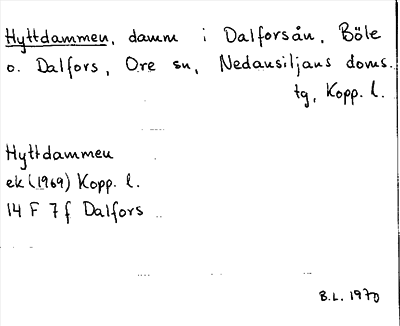 Hyttdammen, damm i Dalforsån, Böle
o. Dalfors, Ore sn, Nedansiljans doms.
tg, Kopp. l.
Hyttdammen
ek (1969) Kopp. l.
14 F 7 f Dalfors
B.L. 1970